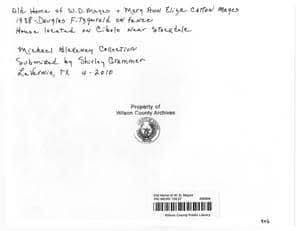 Old Home of W.D. Mayes + Mary Ann Eliza Cotton Mayes
1938 - Douglas F. Fitzgerald on fence
House located on Cibolo near Stockdale
Michael Blakeney Collection
Submitted by Shirley Grammer
LaVernia, TX 4-2010
Property of
Wilson County Archives
Old Home of W. D. Mayes
Wilson County Public Library